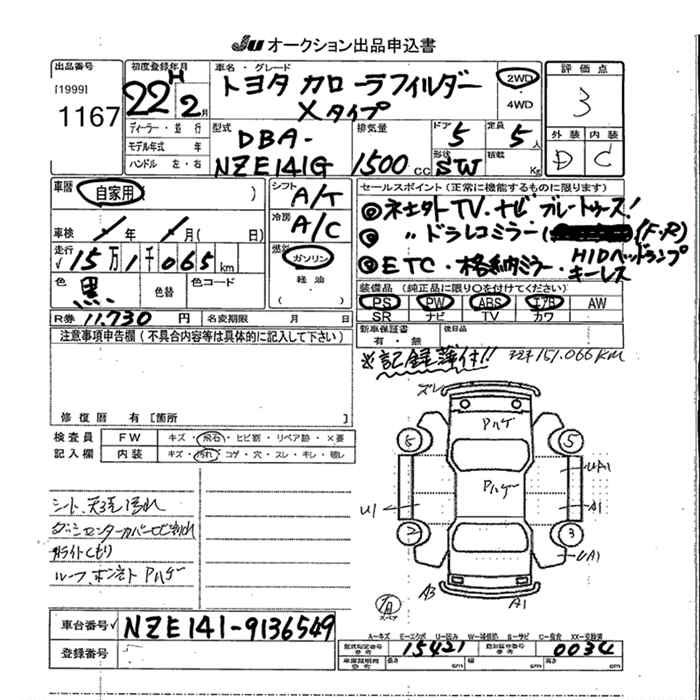 JU オークション出品申込書
出品番号
[1999]
1167
初度登録年月
H
22年 2月
車名・グレード
トヨタ カローラフィルダー
Xタイプ
2WD
4WD
評価点
3
外装 内装
D C
ディーラー・並行
モデル年式 年
ハンドル 左・右
型式
DBA-
NZE141G
排気量
1500 cc
ドア 5
定員 5人
形状 SW
積載 Kg
車歴
自家用 ( )
車検 / 年 / 月( 日)
走行
√15万1千065km
色 黒
色替
色コード
シフト A/T
冷房 A/C
燃料
ガソリン
軽油
( ・ )
セールスポイント(正常に機能するものに限ります)
◎ネ土外TV・ナビ ブルートゥース!
◎ 〃 ドラレコミラー( (F・R)
◎ETC・格納ミラー・HIDヘッドランプ
キーレス
装備品(純正品に限り○を付けてください)
PS PW ABS エアB AW
SR ナビ TV カワ
R券 11,730 円
名変期限 月 日
新車保証書
有・無
後日品
注意事項申告欄(不具合内容等は具体的に記入して下さい)
※記録簿付!!
151,066KM
修復歴 有[箇所
検査員
記入欄
FW キズ・飛石・ヒビ割・リペア跡・×要
内装 キズ・汚れ・コゲ・穴・スレ・キレ・破レ
シート、天張汚れ
ダッシュセンターカバーヒビ割れ
ライトくもり
ルーフ、ボンネット Pハゲ
ズレ
Pハゲ
5
5
Pハゲ
UA1
U1
A1
2
3
UA1
A3
A1
スペア
車台番号√ NZE141-9136549
登録番号
A-キズ E-エクボ U-凹み W-補修跡 S-サビ C-腐食 XX-交換済
型式指定番号
参考
15421
類別区分番号
参考
0034
車庫証明用
参考
長さ cm
幅 cm
高さ cm